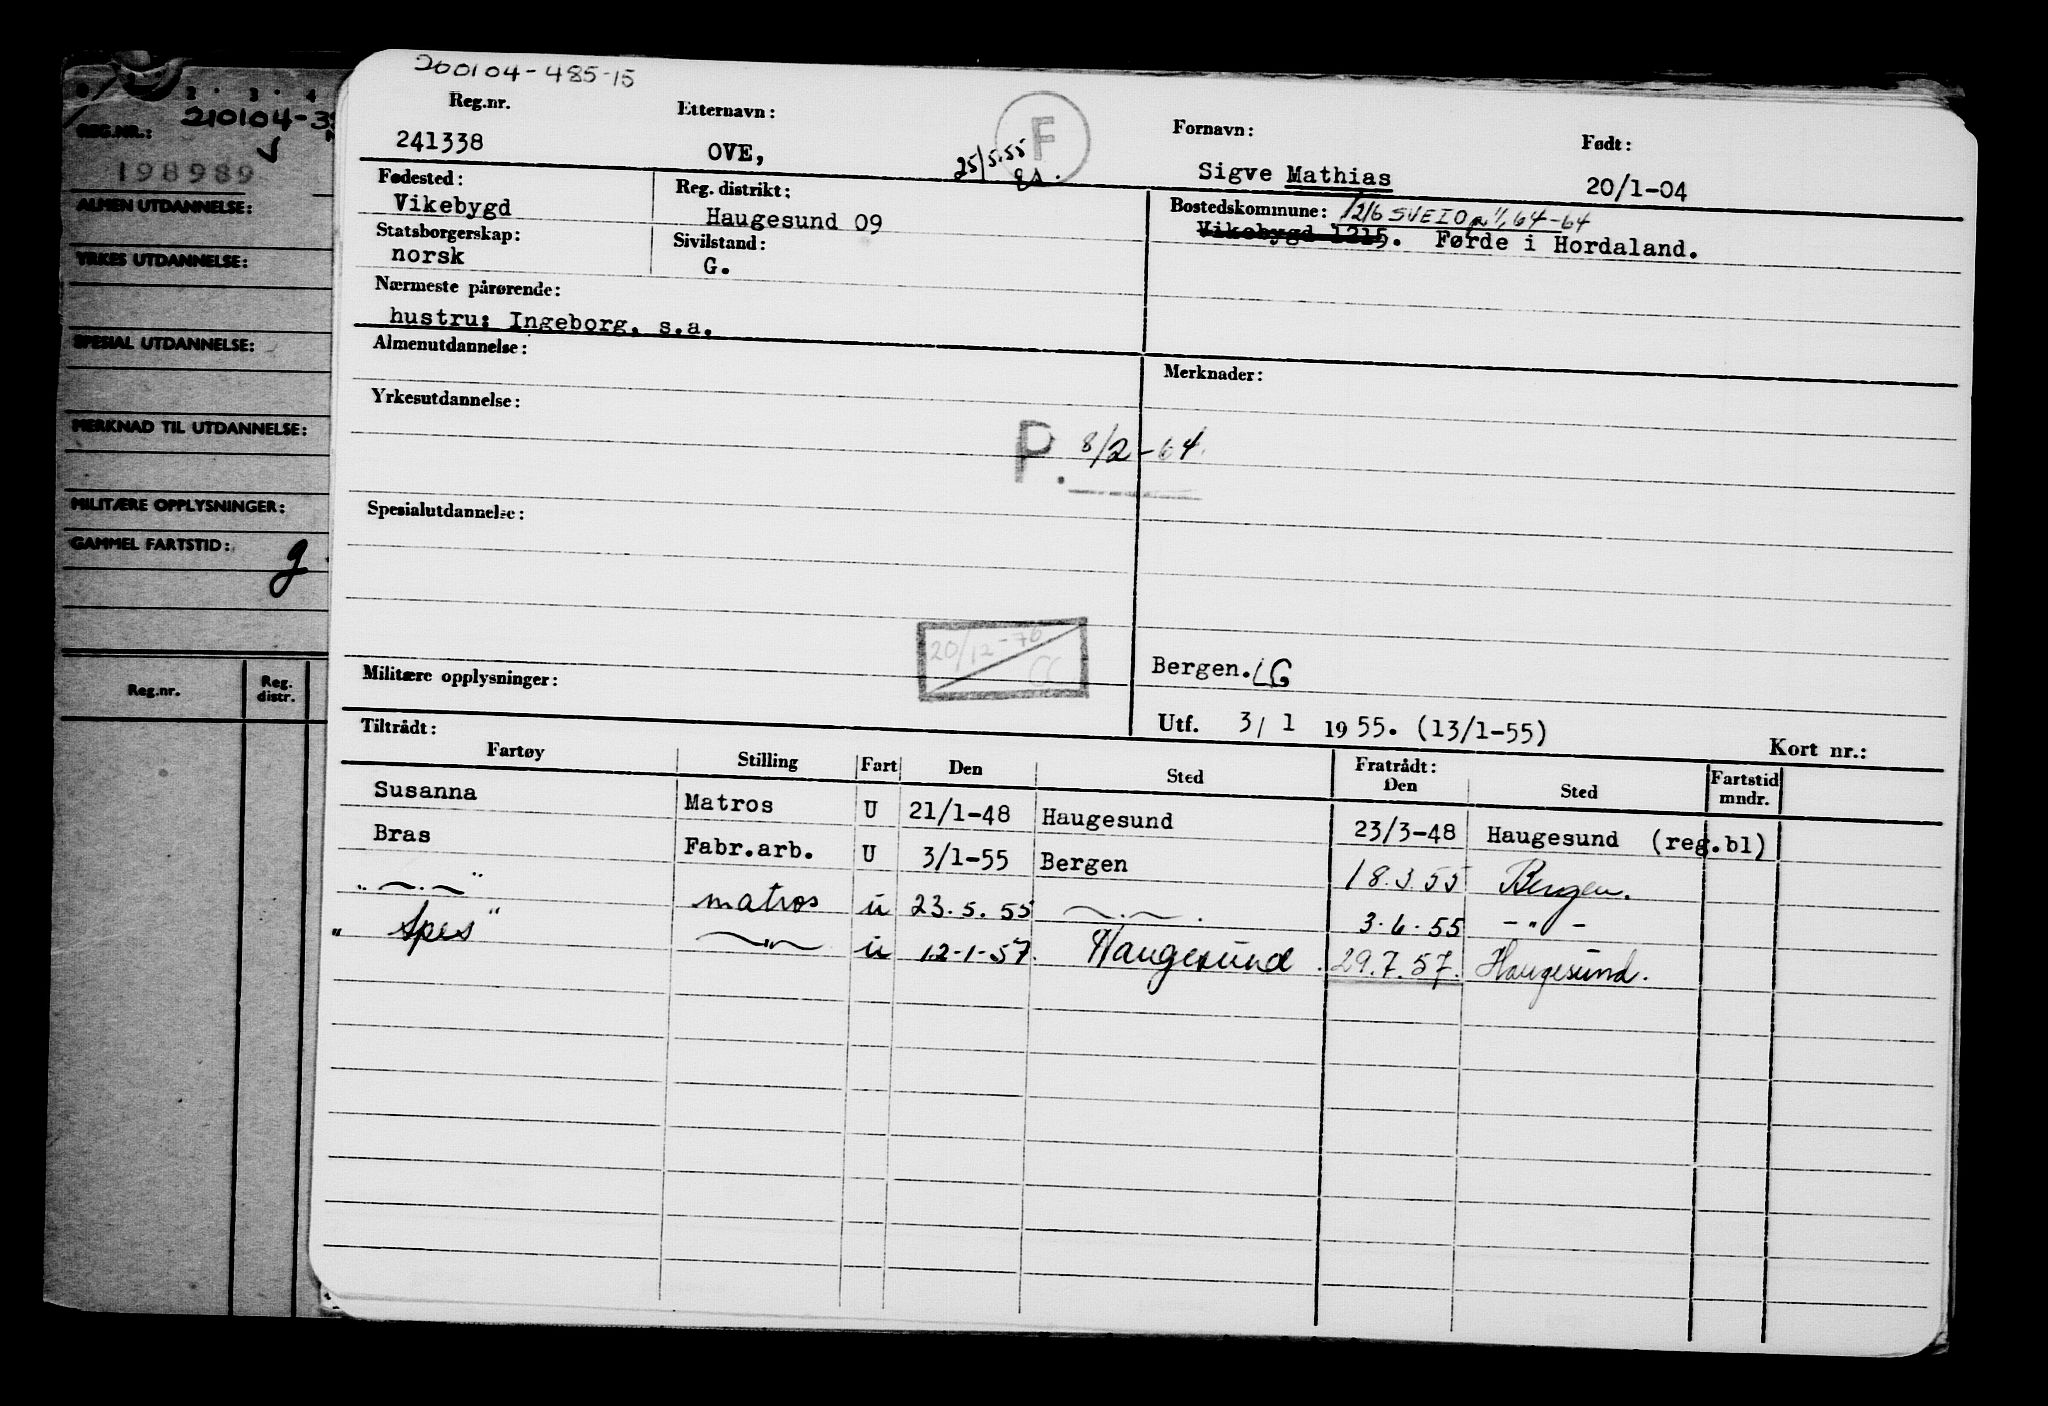 2 · 3 · 4
REG.NR.: 210104-3
198989
ALMEN UTDANNELSE:
YRKES UTDANNELSE:
SPESIAL UTDANNELSE:
MERKNAD TIL UTDANNELSE:
MILITÆRE OPPLYSNINGER:
GAMMEL FARTSTID: g
Reg.nr. Reg. distr.
200104-485-15
Reg.nr. Etternavn: F Fornavn: Født:
241338 OVE, 25/5.55 Sigve Mathias 20/1-04
Fødested: Reg. distrikt: Bostedskommune: 1216 SVEIO 64-64
Vikebygd Haugesund 09 Vikebygd 1215. Førde i Hordaland.
Statsborgerskap: Sivilstand:
norsk G.
Nærmeste pårørende:
hustru: Ingeborg, s.a.
Almenutdannelse: Merknader:
Yrkesutdannelse:
P. 8/2-64.
Spesialutdannelse:
20/12-76
Militære opplysninger: Bergen. LG
Utf. 3/1 1955. (13/1-55) Kort nr.:
Tiltrådt: Fratrådt:
Fartøy Stilling Fart Den Sted Den Sted Fartstid mndr.
Susanna Matros U 21/1-48 Haugesund 23/3-48 Haugesund (reg.bl)
Bras Fabr.arb. U 3/1-55 Bergen 18.3.55 Bergen.
" —.— " matros u 23.5.55 —.— . 3.6.55 -"-
" Spes " —"— u 12-1-57. Haugesund. 29.7.57. Haugesund.